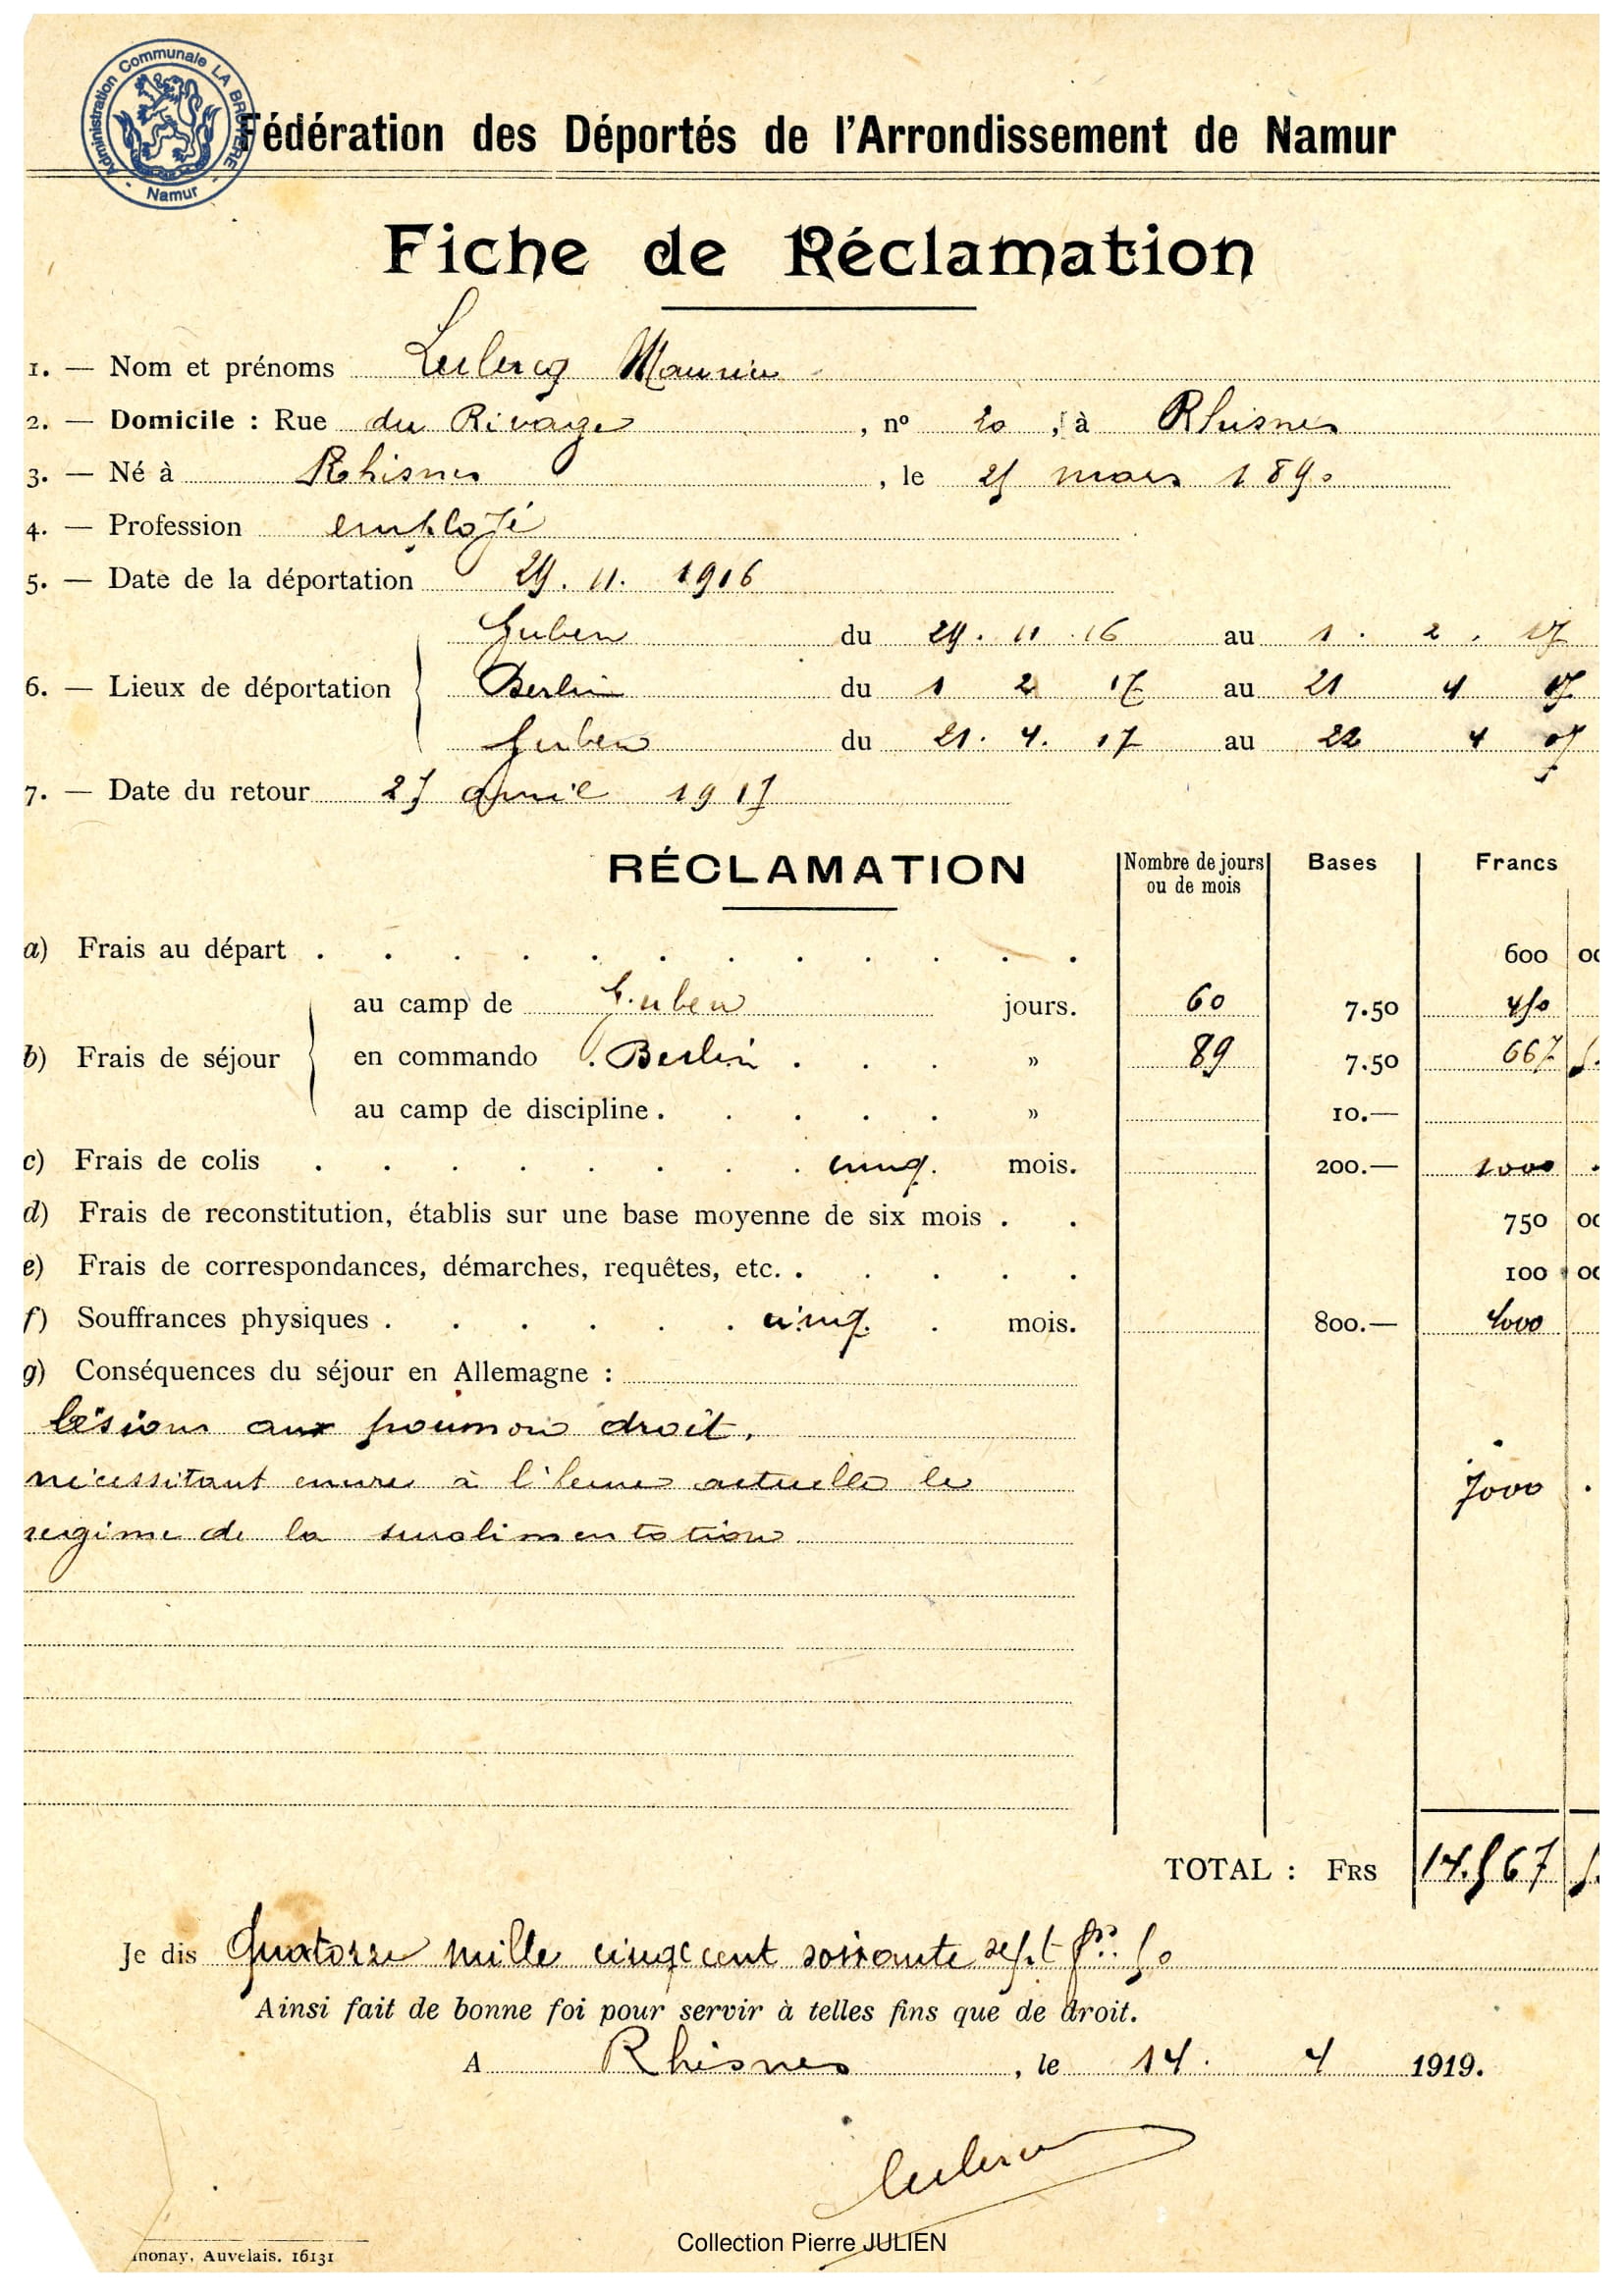 Administration Communale LA BRUYERE - Namur -
Fédération des Déportés de l'Arrondissement de Namur
Fiche de Réclamation
1. — Nom et prénoms Leclercq Maurice
2. — Domicile : Rue du Rivage , nº 20 , à Rhisnes
3. — Né à Rhisnes , le mars 1890
4. — Profession employé
5. — Date de la déportation 29. 11. 1916
Guben du 29. 11. 16 au 1. 2. 17
6. — Lieux de déportation Berlin du 1 2 17 au 21 4 17
Guben du 21. 4. 17 au 22 4 17
7. — Date du retour avril 1917
RÉCLAMATION Nombre de jours ou de mois Bases Francs
a) Frais au départ . . . . . . . . . . . . 600 00
au camp de Guben jours. 60 7.50 450
b) Frais de séjour en commando . Berlin . . . » 89 7.50 667 5.
au camp de discipline . . . . . » 10.—
c) Frais de colis . . . . . . . . cinq. mois. 200.— 1000 .
d) Frais de reconstitution, établis sur une base moyenne de six mois . . 750 00
e) Frais de correspondances, démarches, requêtes, etc. . . . . . 100 00
f) Souffrances physiques . . . . . . cinq. . mois. 800.— 4000
g) Conséquences du séjour en Allemagne :
lésions aux poumon droit.
nécessitant encore à l'heure actuelle le
regime de la suralimentation. .
TOTAL : FRS 14.567 5.
Je dis Quatorze mille cinq cent soixante sept frs. 50
Ainsi fait de bonne foi pour servir à telles fins que de droit.
A Rhisnes , le 14. 4 1919.
Leclercq
Collection Pierre JULIEN
nonay, Auvelais. 16131